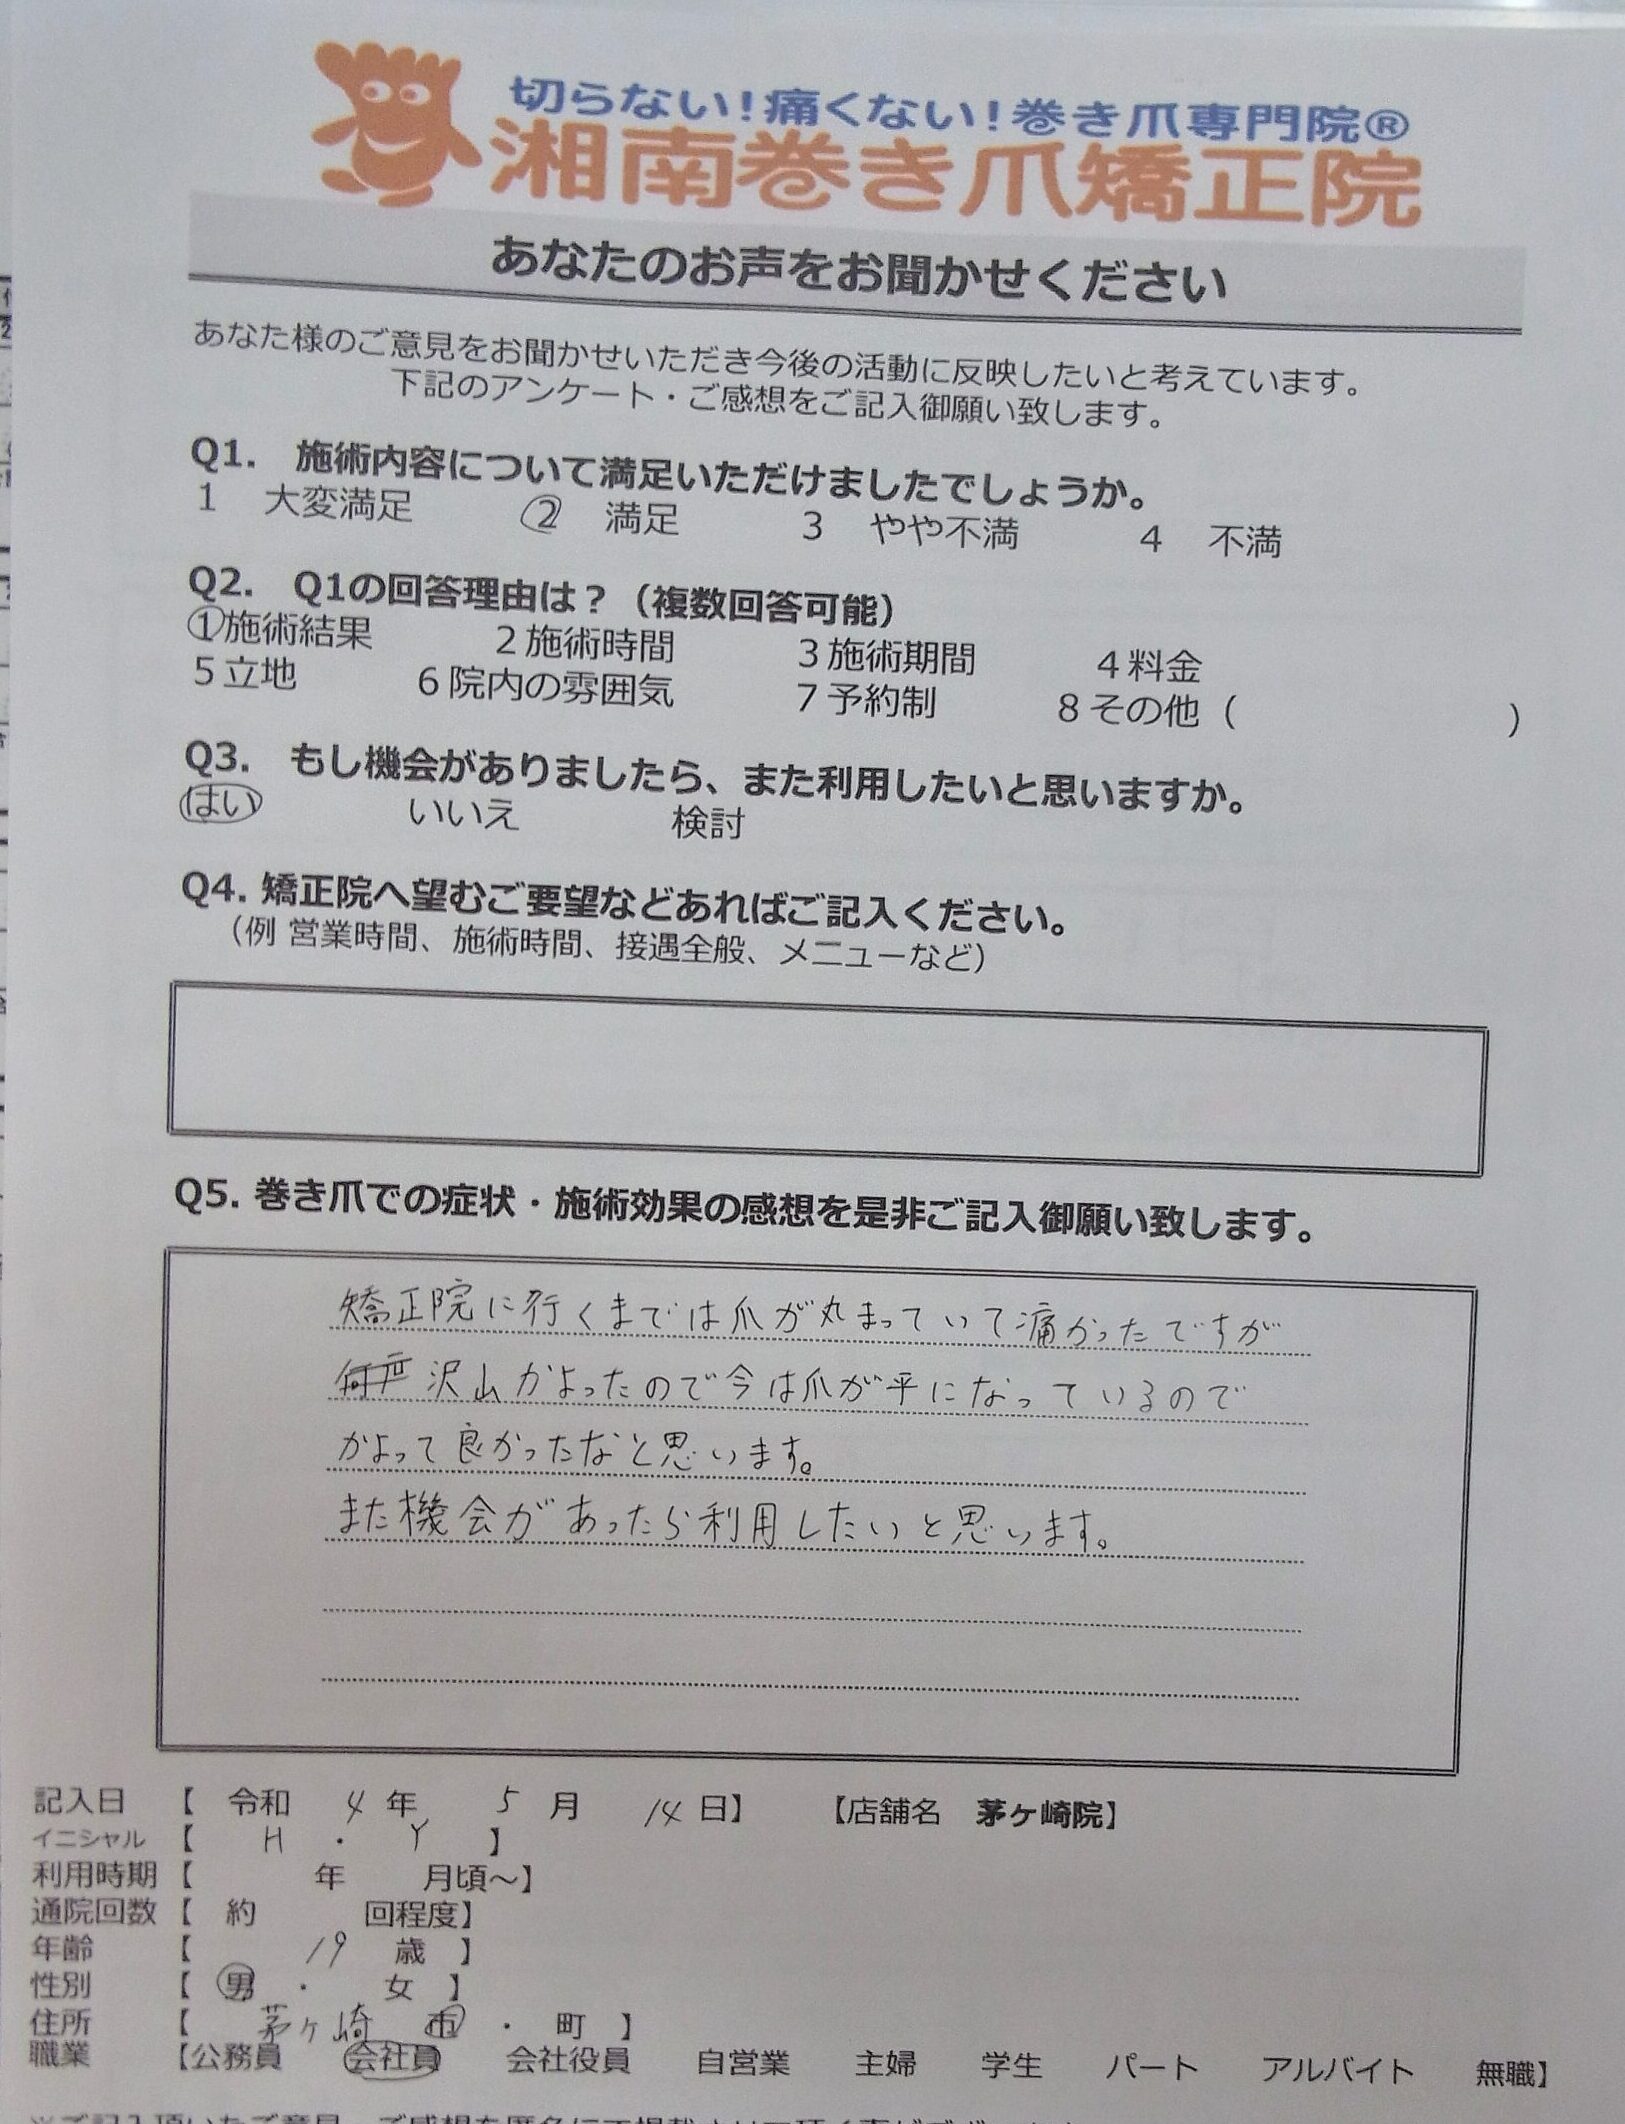 切らない！痛くない！巻き爪専門院®
湘南巻き爪矯正院
あなたのお声をお聞かせください
あなた様のご意見をお聞かせいただき今後の活動に反映したいと考えています。
下記のアンケート・ご感想をご記入御願い致します。
Q1. 施術内容について満足いただけましたでしょうか。
1 大変満足 ② 満足 3 やや不満 4 不満
Q2. Q1の回答理由は？（複数回答可能）
①施術結果 2施術時間 3施術期間 4料金
5立地 6院内の雰囲気 7予約制 8その他（ ）
Q3. もし機会がありましたら、また利用したいと思いますか。
はい いいえ 検討
Q4. 矯正院へ望むご要望などあればご記入ください。
（例 営業時間、施術時間、接遇全般、メニューなど）
Q5. 巻き爪での症状・施術効果の感想を是非ご記入御願い致します。
矯正院に行くまでは爪が丸まっていて痛かったですが
沢山かよったので今は爪が平になっているので
かよって良かったなと思います。
また機会があったら利用したいと思います。
記入日 【 令和 4 年 5 月 14 日】 【店舗名 茅ヶ崎院】
イニシャル 【 H ・ Y 】
利用時期 【 年 月頃～】
通院回数 【 約 回程度】
年齢 【 19 歳 】
性別 【 男 ・ 女 】
住所 【 茅ヶ崎 市 ・ 町 】
職業 【公務員 会社員 会社役員 自営業 主婦 学生 パート アルバイト 無職】